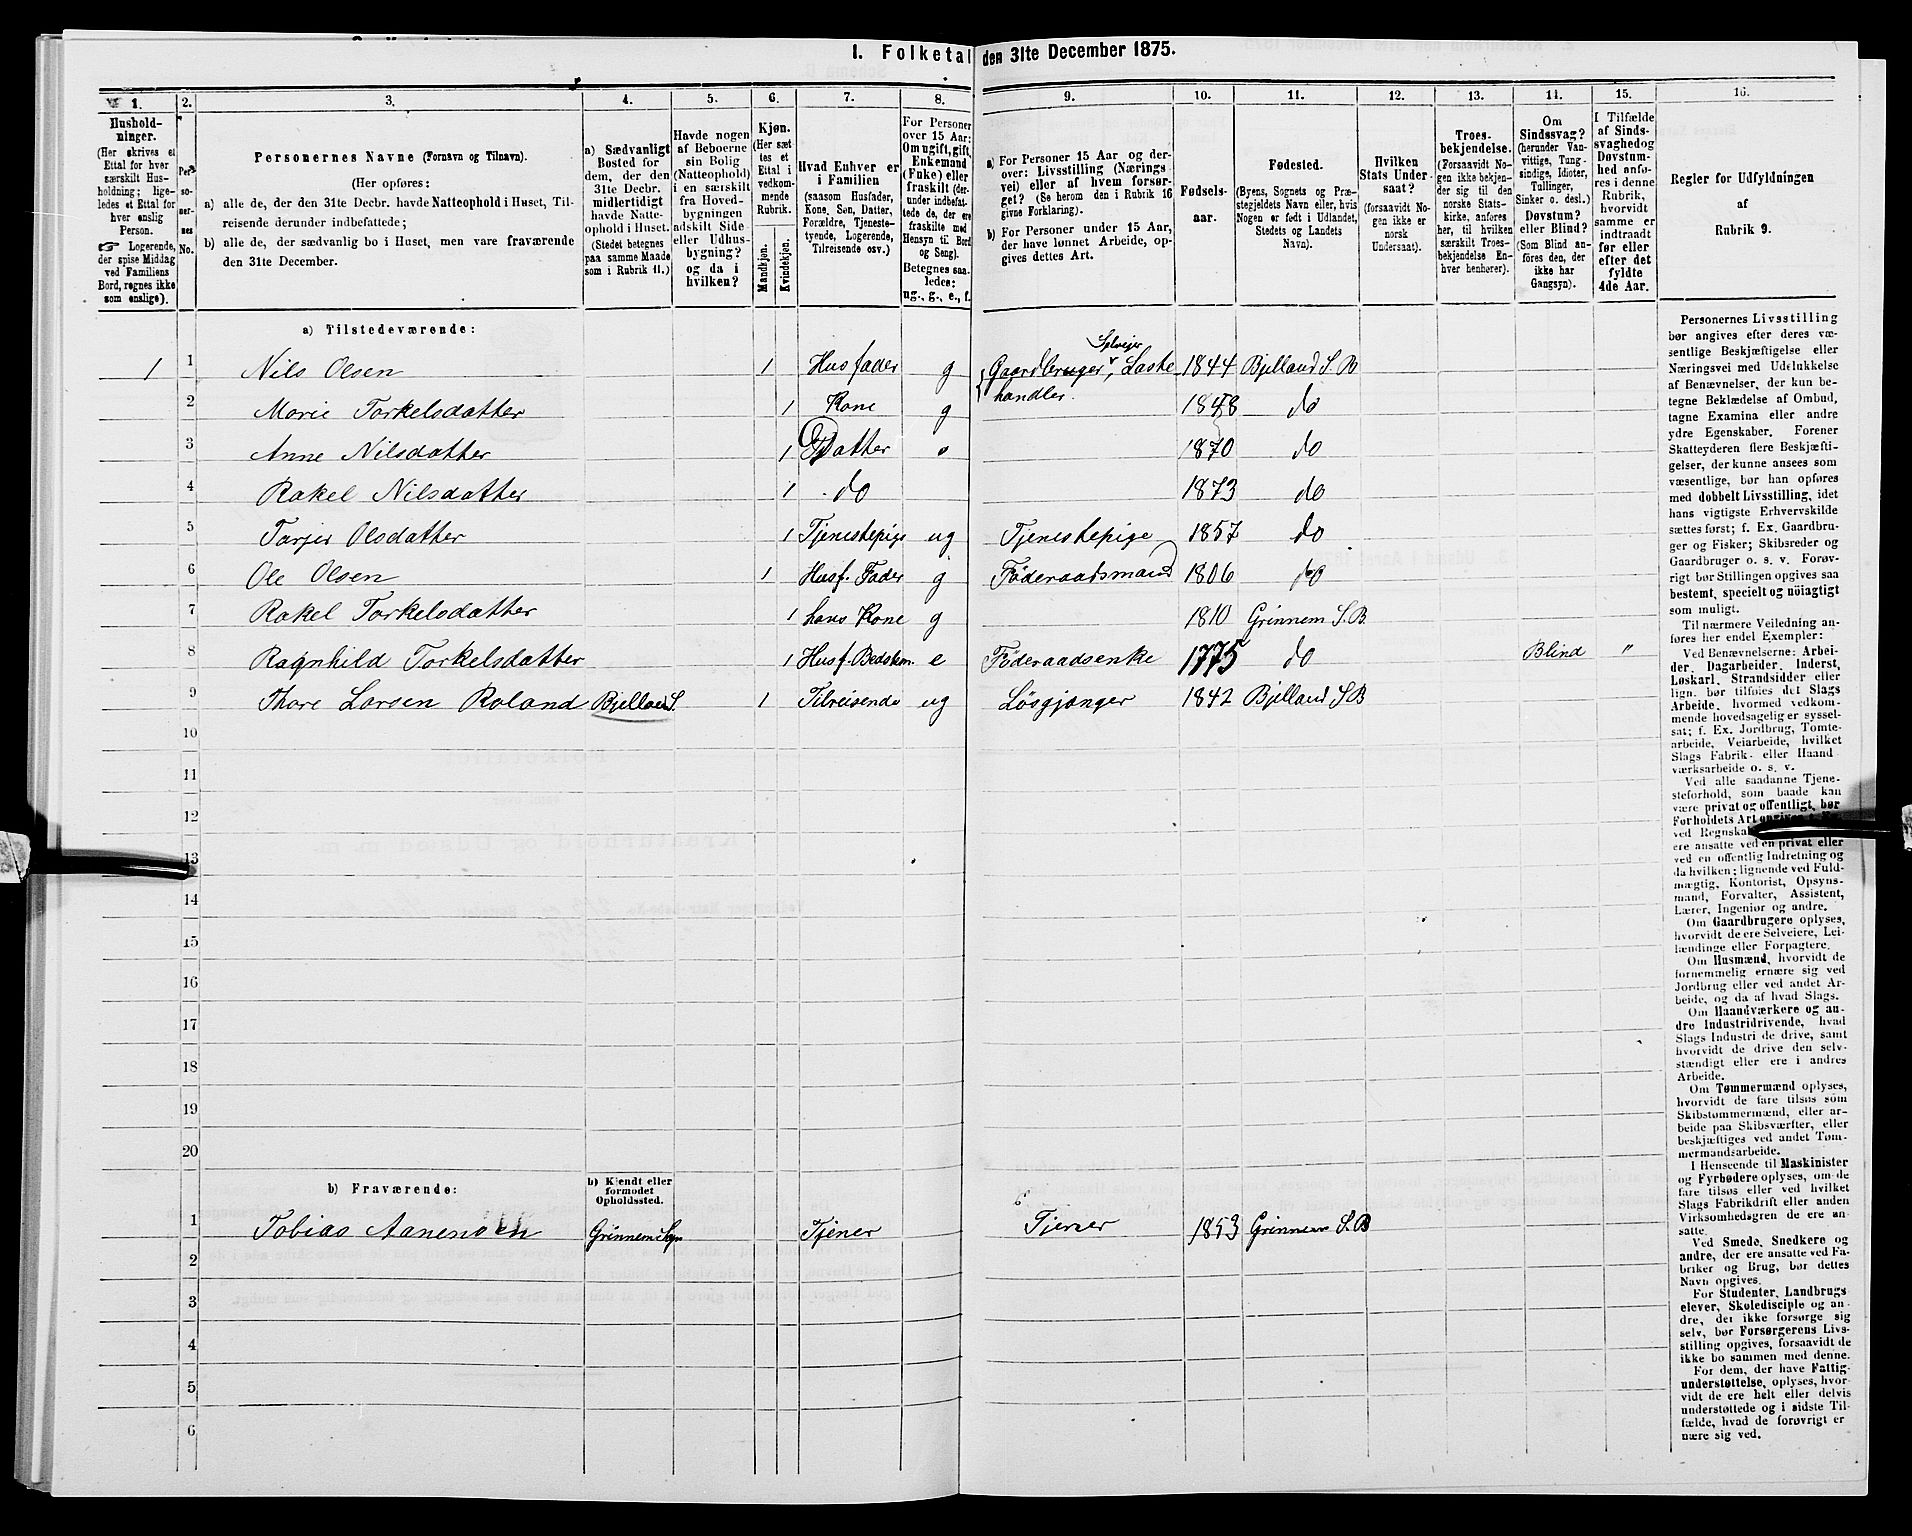 I. Folketal den 31te December 1875.
1. 2. 3. 4. 5. 6. 7. 8. 9. 10. 11. 12. 13. 14. 15. 16.
Hushold-
ninger.
(Her skrives et
Ettal for hver
særskilt Hus-
holdning; lige-
ledes et Ettal for
hver enslig
Person.
☞ Logerende,
der spise Middag
ved Familiens
Bord, regnes ikke
som enslige).
Per-
so-
ner-
nes
No.
Personernes Navne (Fornavn og Tilnavn).
(Her opføres:
a) alle de, der den 31te Decbr. havde Natteophold i Huset, Til-
reisende derunder indbefattede;
b) alle de, der sædvanlig bo i Huset, men vare fraværende
den 31te December.
a) Sædvanligt
Bosted for
dem, der den
31te Decbr.
midlertidigt
havde Natte-
ophold i Huset.
(Stedet betegnes
paa samme Maade
som i Rubrik 11.)
Havde nogen
af Beboerne
sin Bolig
(Natteophold)
i en særskilt
fra Hoved-
bygningen
adskilt Side-
eller Udhus-
bygning?
og da i
hvilken?
Kjøn.
(Her sæt-
tes et
Ettal i
vedkom-
mende
Rubrik.
Mandkjøn.
Kvindekjøn.
Hvad Enhver er
i Familien
(saasom Husfader,
Kone, Søn, Datter,
Forældre, Tjeneste-
tyende, Logerende,
Tilreisende osv.)
For Personer
over 15 Aar:
Om ugift, gift,
Enkemand
(Enke) eller
fraskilt (der-
under indbefat-
tede de, der ere
fraskilte med
Hensyn til Bord
og Seng).
Betegnes saa-
ledes:
ug., g., e., f.
a) For Personer 15 Aar og der-
over: Livsstilling (Nærings-
vei) eller af hvem forsør-
get? (Se herom den i Rubrik 16
givne Forklaring).
b) For Personer under 15 Aar,
der have lønnet Arbeide, op-
gives dettes Art.
Fødsels-
aar.
Fødested.
(Byens, Sognets og Præ-
stegjeldets Navn eller, hvis
Nogen er født i Udlandet,
Stedets og Landets
Navn).
Hvilken
Stats Under-
saat?
(forsaavidt No-
gen ikke er
norsk
Undersaat).
Troes-
bekjendelse.
(Forsaavidt No-
gen ikke bekjen-
der sig til den
norske Stats-
kirke, anføres
her, til hvilken
særskilt Troes-
bekjendelse En-
hver henhører).
Om
Sindssvag?
(herunder Van-
vittige, Tung-
sindige, Idioter,
Tullinger,
Sinker o. desl.)
Døvstum?
eller Blind?
(Som Blind an-
føres den, der
ikke har
Gangsyn).
I Tilfælde
af Sinds-
svaghed og
Døvstum-
hed anfø-
res i denne
Rubrik,
hvorvidt
samme er
indtraadt
før eller
efter det
fyldte
4de Aar.
Regler for Udfyldningen
af
Rubrik 9.
a) Tilstedeværende:
1 1 Nils Olsen 1 Husfader g Gaardbruger Selveier, Laste 1844 Bjelland S. B
handler.
2 Marie Torkelsdatter 1 Kone g 1848 do
3 Anne Nilsdatter 1 Datter 1870 do
4 Rakel Nilsdatter 1 do 1873 do
5 Tarjer Olsdatter 1 Tjenestepige ug Tjenestepige 1857 do
6 Ole Olsen 1 Husf. Fader g Föderaadsmand 1806 do
7 Rakel Torkelsdatter 1 hans Kone g 1810 Grinnem S. B.
8 Ragnhild Torkelsdatter 1 Husf. Bedstem. e Föderaadsenke 1775 do Blind "
9 Thore Larsen Roland Bjelland S. 1 Tilreisende ug Lösgjænger 1842 Bjelland S B
10
11
12
13
14
15
16
17
18
19
20
b) Fraværende:
b) Kjendt eller
formodet
Opholdssted.
1 Tobias Aanensen Grinnem Sogn Tjener Tjener 1853 Grinnem S. B
2
3
4
5
6
Personernes Livsstilling
bør angives efter deres væ-
sentlige Beskjæftigelse eller
Næringsvei med Udelukkelse
af Benævnelser, der kun be-
tegne Beklædelse af Ombud,
tagne Examina eller andre
ydre Egenskaber. Forener
Skatteyderen flere Beskjæfti-
gelser, der kunne ansees som
væsentlige, bør han opføres
med dobbelt Livsstilling, idet
hans vigtigste Erhvervskilde
sættes først; f. Ex. Gaardbru-
ger og Fisker; Skibsreder og
Gaardbruger o. s. v. Forøv-
rigt bør Stillingen opgives saa
bestemt, specielt og nöiagtigt
som muligt.
Til nærmere Veiledning an-
føres her endel Exempler:
Ved Benævnelserne: Arbei-
der, Dagarbeider, Inderst,
Løskarl, Strandsidder eller
lign. bør tilføies det Slags
Arbeide, hvormed vedkom-
mende hovedsagelig er syssel-
sat; f. Ex. Jordbrug, Tomte-
arbeide, Veiarbeide, hvilket
Slags Fabrik- eller Haand-
værksarbeide o. s. v.
Ved alle saadanne Tjene-
steforhold, som baade kan
være privat og offentligt, bør
Forholdets Art
ved Regnska
ere ansatte ved en privat eller
ved en offentlig Indretning og
da hvilken; lignende ved Fuld-
mægtig, Kontorist, Opsyns-
mand, Forvalter, Assistent,
Lærer, Ingeniør og andre.
Om Gaardbrugere oplyses,
hvorvidt de ere Selveiere, Lei-
lændinge eller Forpagtere.
Om Husmænd, hvorvidt de
fornemmelig ernære sig ved
Jordbrug eller ved andet Ar-
beide, og da af hvad Slags.
Om Haandværkere og an-
dre Industridrivende, hvad
Slags Industri de drive, samt
hvorvidt de drive den selv-
stændigt eller ere i andres
Arbeide.
Om Tømmermænd oplyses,
hvorvidt de fare tilsøs som
Skibstømmermænd, eller ar-
beide paa Skibsværfter, eller
beskjæftiges ved andet Tøm-
mermandsarbeide.
I Henseende til Maskinister
og Fyrbødere oplyses, om de
fare tilsøs eller ved hvilket
Slags Fabrikdrift eller anden
Virksomhedsgren de ere an-
satte.
Ved Smede, Snedkere og
andre, der ere ansatte ved Fa-
briker og Brug, bør dettes
Navn opgives.
For Studenter, Landbrugs-
elever, Skoledisciple og an-
dre, der ikke forsørge sig
selv, bør Forsørgerens Livs-
stilling opgives, forsaavidt de
ikke bo sammen med denne.
For dem, der have Fattig-
understøttelse, oplyses, hvor-
vidt de ere helt eller delvis
understøttede og i sidste Til-
fælde, hvad de forøvrigt er-
nære sig ved.